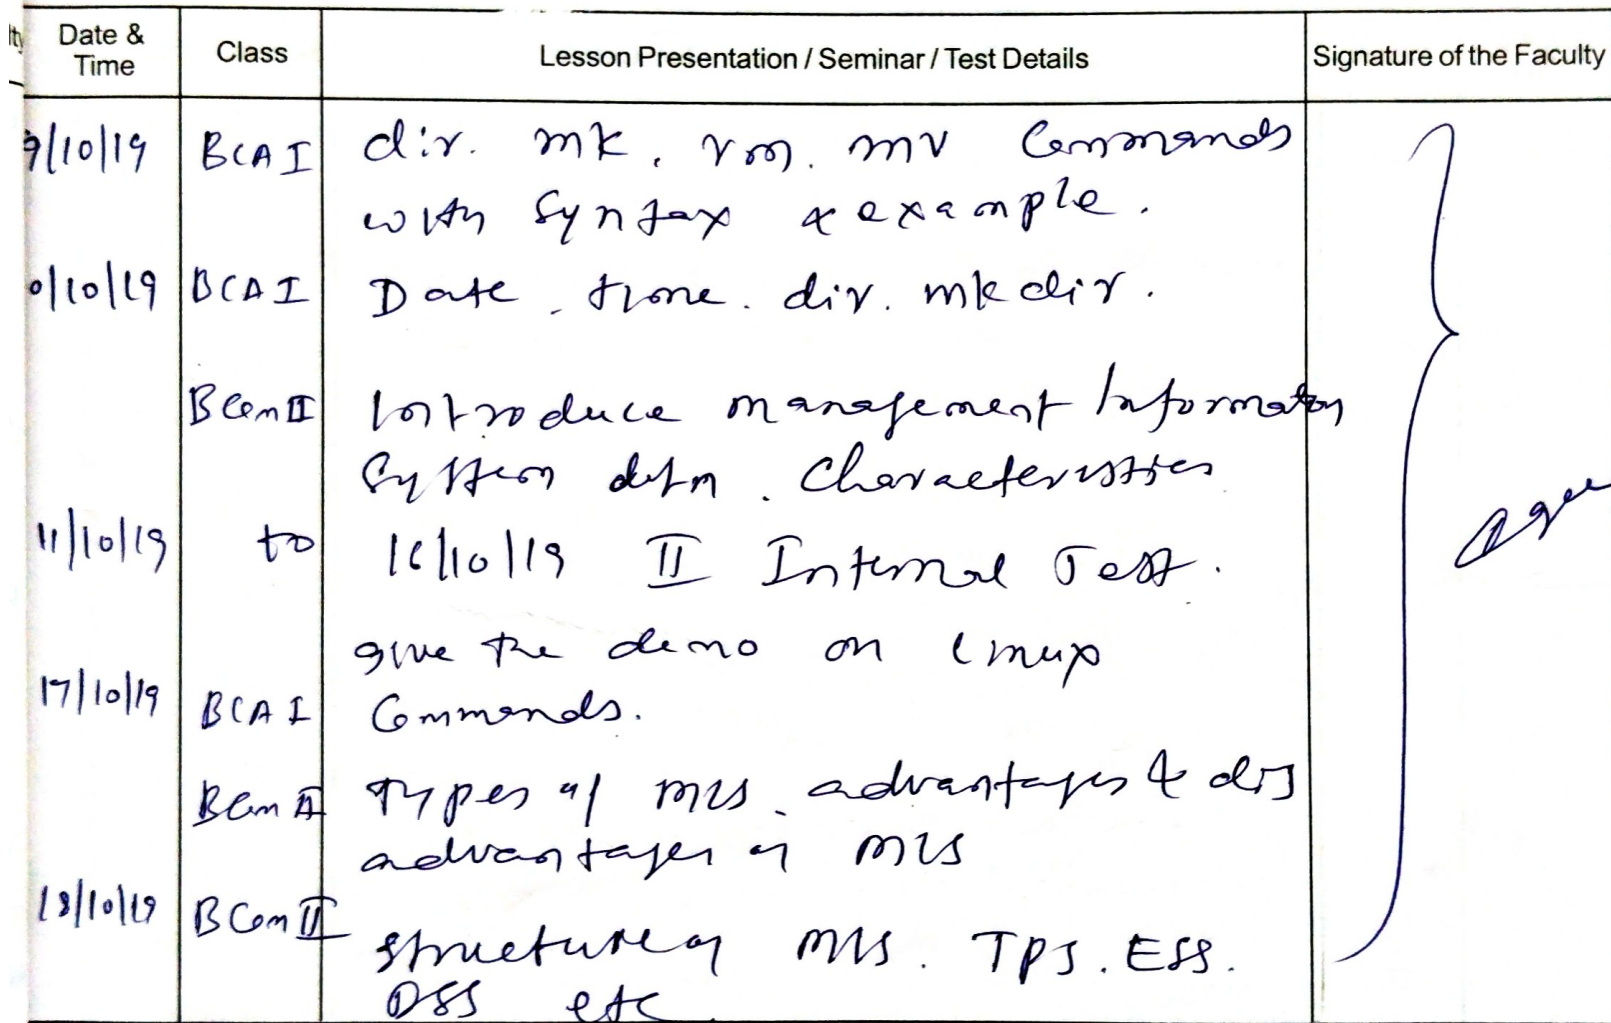 Date & Time Class Lesson Presentation / Seminar / Test Details Signature of the Faculty
9/10/19 BCA I dir. mk, rm. mv Commands
with Syntax & example.
0/10/19 BCA I Date, time. dir. mkdir.
BCom II Introduce management Information
System defn. Characteristics
11/10/19 to 16/10/19 II Internal Test.
give the demo on linux
17/10/19 BCA I Commands.
BCom II Types of MIS, advantages & dis
advantages of MIS
18/10/19 BCom II structure of MIS. TPS. ESS.
DSS etc.